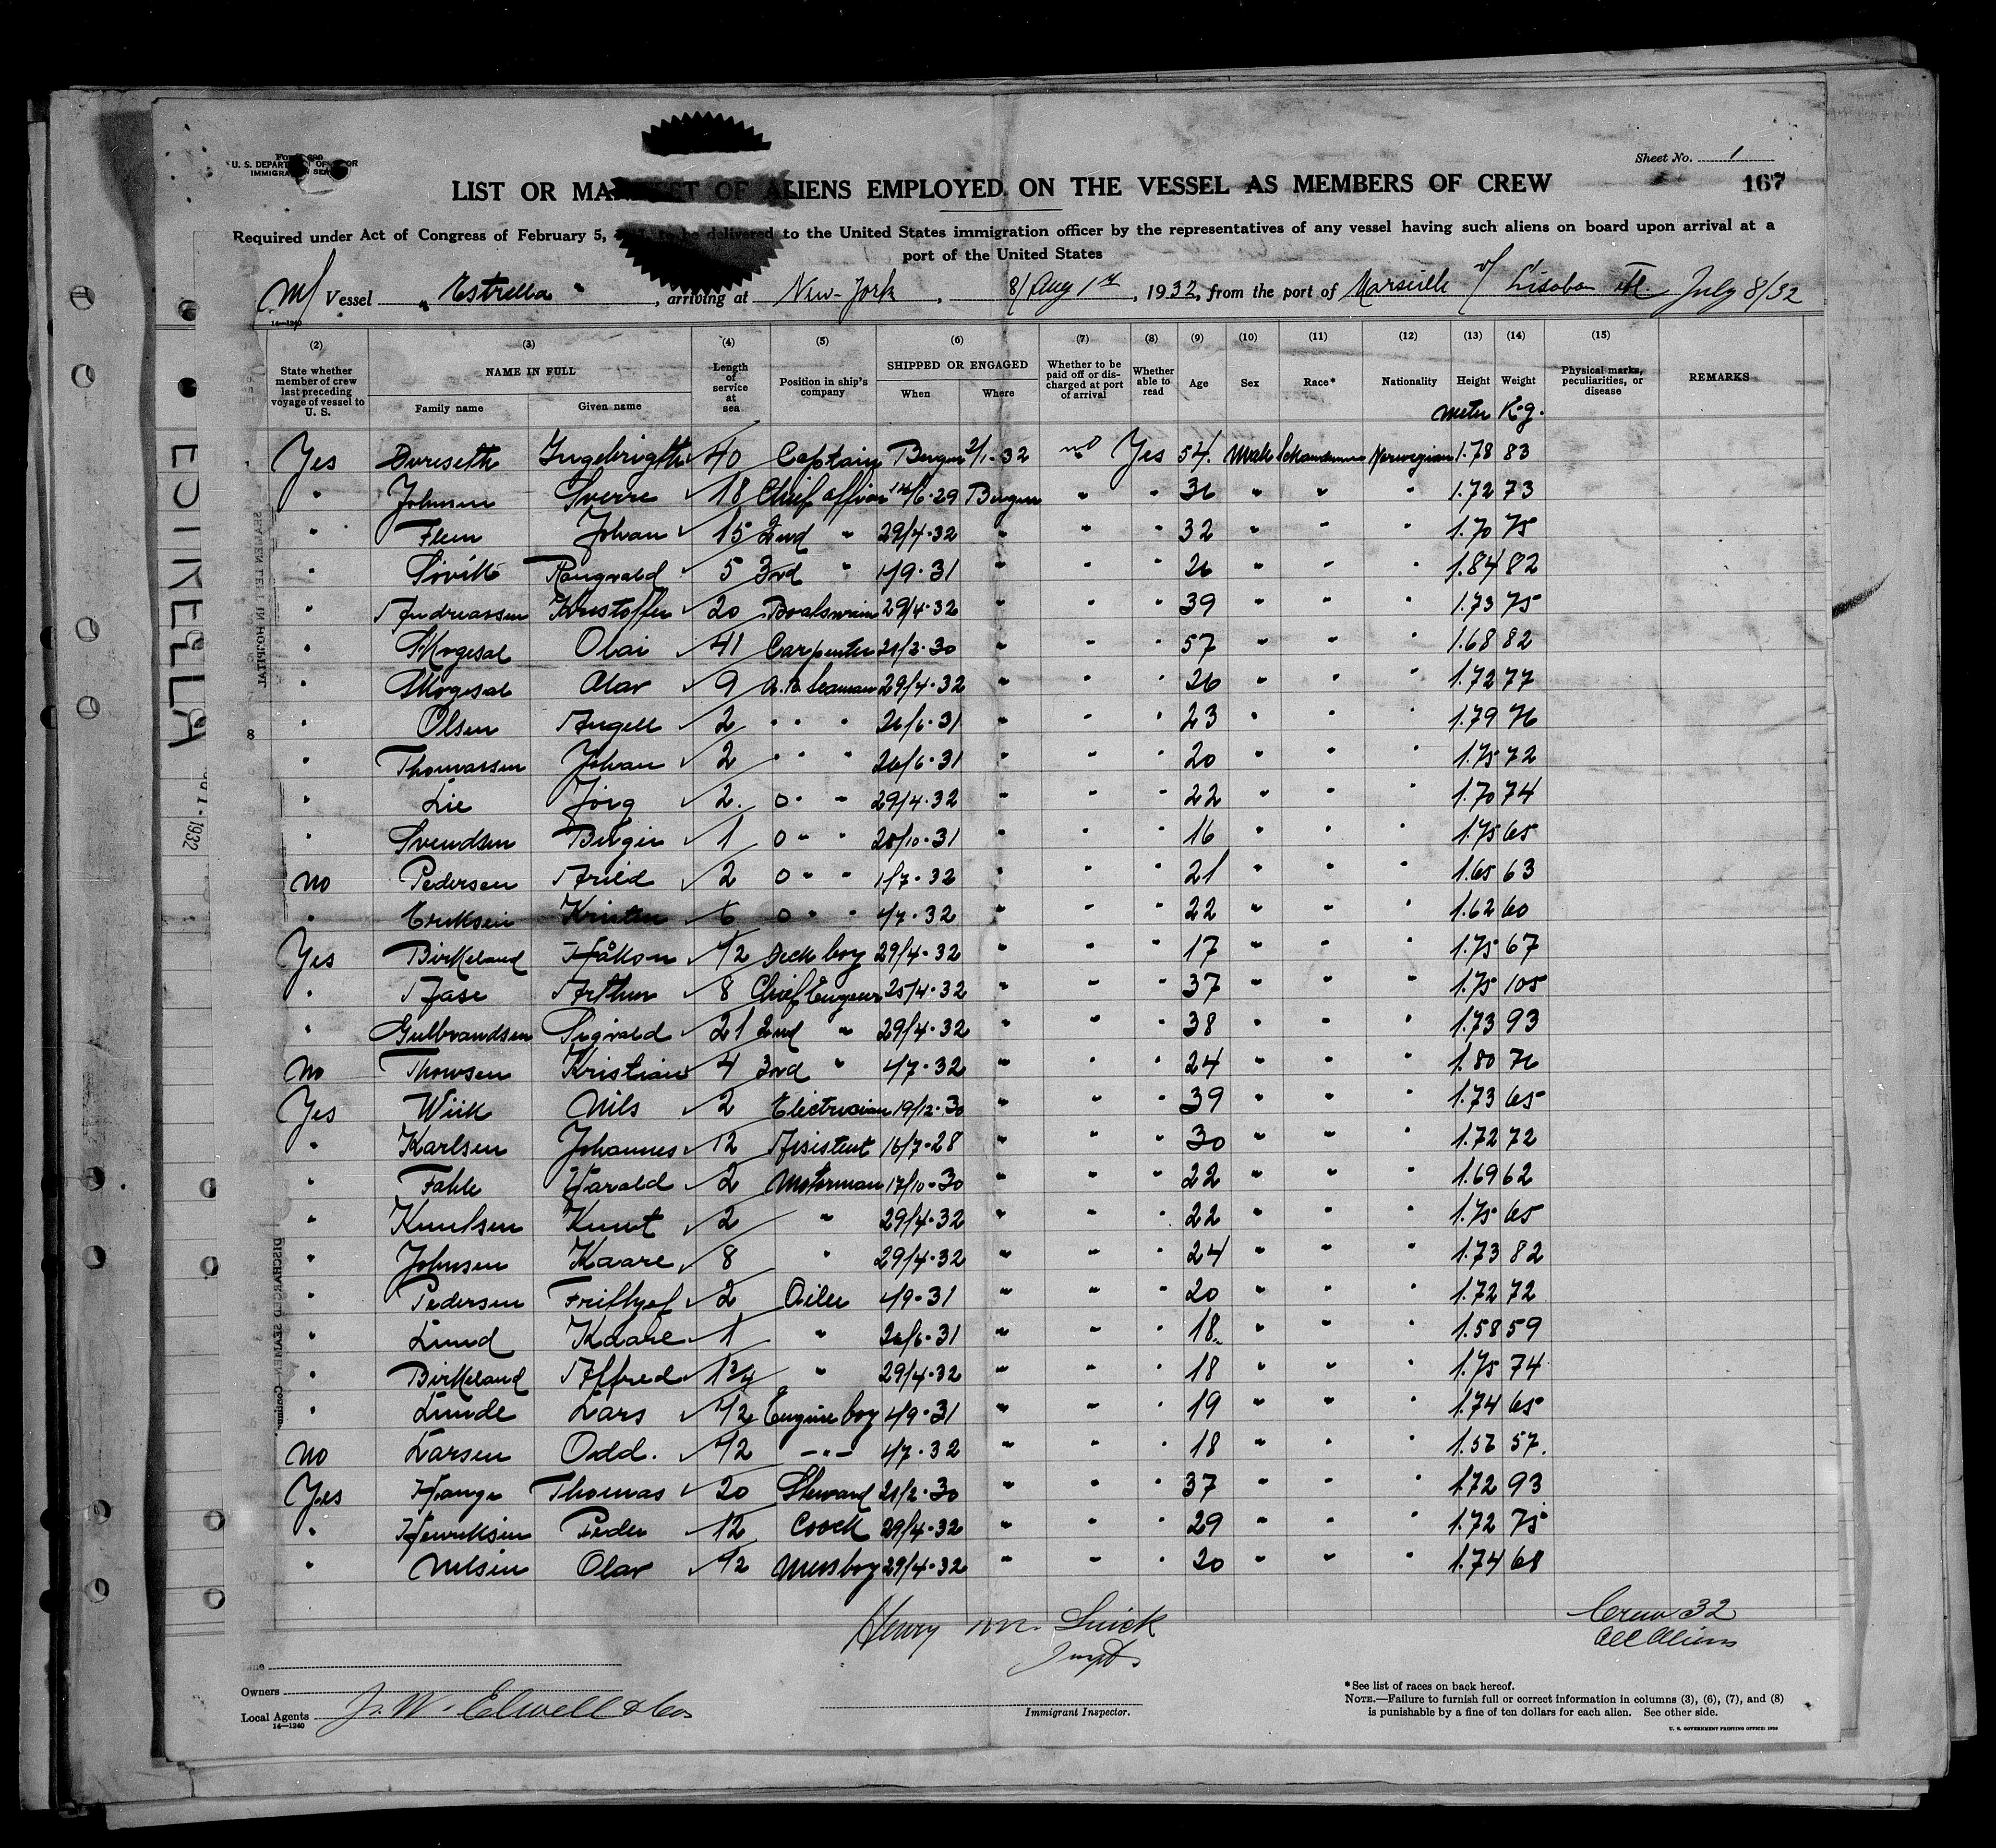 Sheet No. 1
U. S. DEPARTMENT OF LABOR
IMMIGRATION SERVICE
LIST OR MANIFEST OF ALIENS EMPLOYED ON THE VESSEL AS MEMBERS OF CREW 167
Required under Act of Congress of February 5, to be delivered to the United States immigration officer by the representatives of any vessel having such aliens on board upon arrival at a
port of the United States
M/ Vessel "Estrella", arriving at New-York, 8/Aug 1st, 1932, from the port of Marseille Lisabon July 8/32
14—1240
(2) (3) (4) (5) (6) (7) (8) (9) (10) (11) (12) (13) (14) (15)
State whether member of crew last preceding voyage of vessel to U. S. NAME IN FULL Family name Given name Length of service at sea Position in ship's company SHIPPED OR ENGAGED When Where Whether to be paid off or discharged at port of arrival Whether able to read Age Sex Race* Nationality Height Weight Physical marks, peculiarities, or disease REMARKS
meter K-g.
Yes Ingebrigth 40 Captain Bergen 2/1-32 no Yes 54. Male Norwegian 1.78 83
" Johnsen Sverre 18 Chief 29 Bergen " " 36 " " " 1.72 73
" Flem Johan 15 2nd " 29/4-32 " " " 32 " " " 1.70 75
" Sövik Rangvald 5 3rd " 1/9-31 " " " 26 " " " 1.84 82
" Andreassen Kristoffer 20 Boatswain 29/4-32 " " " 39 " " " 1.73 75
" Olai 41 Carpenter 21/2-30 " " " 57 " " " 1.68 82
" Olav 9 A.B. Seaman 29/4-32 " " " 26 " " " 1.72 77
8 " Olsen Angell 2 " " " 26/6-31 " " " 23 " " " 1.79 76
" Thomassen Johan 2 " " " 26/6-31 " " " 20 " " " 1.75 72
" Lie Jörg 2. O " " 29/4-32 " " " 22 " " " 1.70 74
" Svendsen Birger 1 O " " 31 " " " 16 " " " 1.75 65
no Pedersen Arild 2 O " " 1/7-32 " " " 21 " " " 1.65 63
" Eriksen Kristen 6 O " " 1/7-32 " " " 22 " " " 1.62 60
Yes Birkeland Håkon 1/2 Deck boy 29/4-32 " " " 17 " " " 1.75 67
" Aase Arthur 8 Chief Engineer 25/4-32 " " " 37 " " " 1.75 105
" Gulbrandsen Sigvald 21 2nd " 29/4-32 " " " 38 " " " 1.73 93
No Thowsen Kristian 4 3rd " 1/7-32 " " " 24 " " " 1.80 76
Yes Wiik Nils 2 Electrician 19/12-30 " " " 39 " " " 1.73 65
" Karlsen Johannes 12 Asistent 16/7-28 " " " 30 " " " 1.72 72
" Fahle Harald 2 Motorman 17/10-30 " " " 22 " " " 1.69 62
" Knutsen Knut 2 " 29/4-32 " " " 22 " " " 1.75 65
" Johnsen Kaare 8 " 29/4-32 " " " 24 " " " 1.73 82
" Pedersen Frithjof 2 Oiler 1/9-31 " " " 20 " " " 1.72 72
" Lund Kaare 1 " 26/6-31 " " " 18 " " " 1.58 59
" Birkeland Alfred " 29/4-32 " " " 18 " " " 1.75 74
" Lunde Lars 1/2 Engine boy 1/9-31 " " " 19 " " " 1.74 65
No Larsen Odd. 1/2 -"- 1/7-32 " " " 18 " " " 57.
Yes Hauge Thomas 20 Steward 21/2-30 " " " 37 " " " 1.72 93
" Henriksen Peder 12 Coock 29/4-32 " " " 29 " " " 1.72 75
" Nilsen Olav 1/2 Messboy 29/4-32 " " " 20 " " " 1.74 68
Henry
Crew 32
All Aliens
Owners
Local Agents J. W. Elwell & Co.
14—1240
Immigrant Inspector.
*See list of races on back hereof.
NOTE.—Failure to furnish full or correct information in columns (3), (6), (7), and (8)
is punishable by a fine of ten dollars for each alien. See other side.
ESTRELLA
1932
SEAMEN LEFT IN HOSPITAL
DISCHARGED SEAMEN